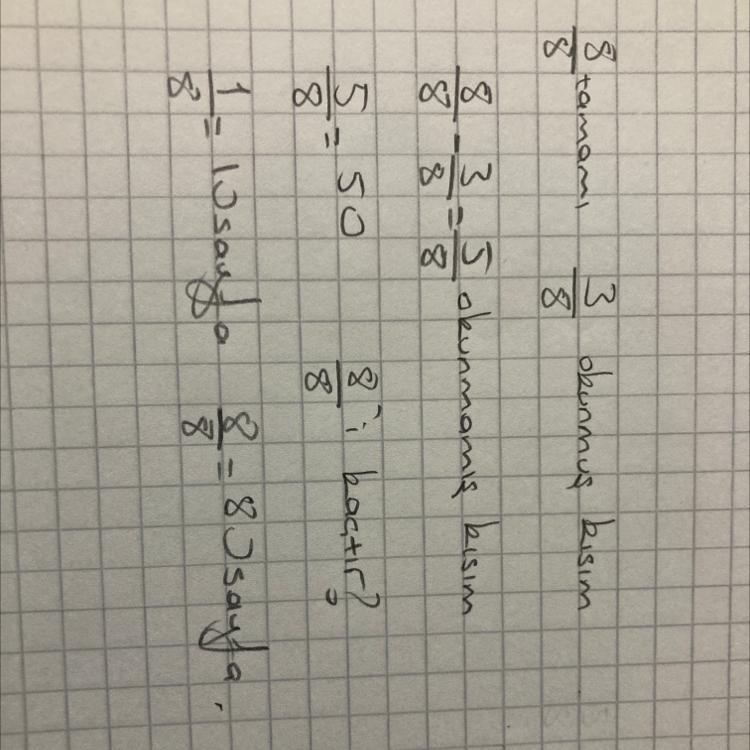 8/8 tamamı 3/8 okunmuş kısım
8/8 - 3/8 = 5/8 okunmamış kısım
5/8 = 50 8/8'i kaçtır?
1/8 = 10 sayfa 8/8 = 80 sayfa.